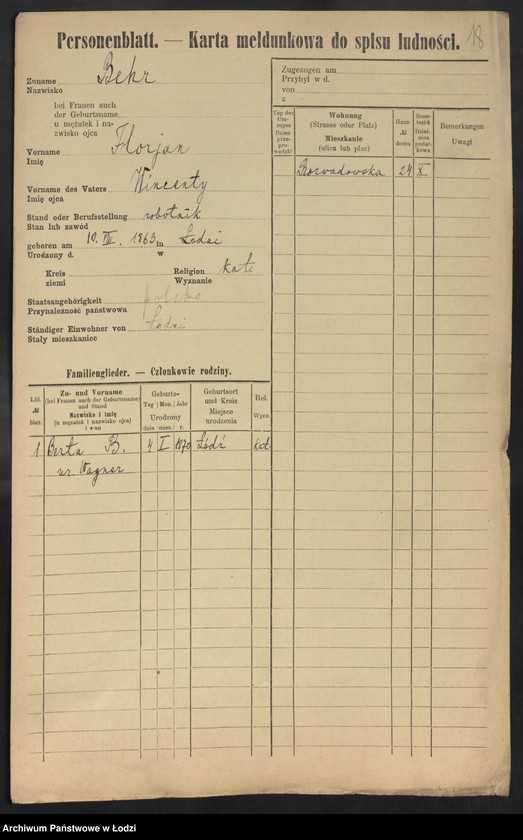 18
Personenblatt. — Karta meldunkowa do spisu ludności.
Zuname Behr
Nazwisko
bei Frauen auch
der Geburtsname
u mężatek i na-
zwisko ojca
Vorname Florjan
Imię
Vorname des Vaters Wincenty
Imię ojca
Stand oder Berufsstellung robotnik
Stan lub zawód
geboren am 10. VIII. 1863 in Łodzi
Urodzony d. w
Kreis Religion kat
ziemi Wyznanie
Staatsangehörigkeit polska
Przynależność państwowa
Ständiger Einwohner von Łodzi
Stały mieszkaniec
Familienglieder. — Członkowie rodziny.
Lfd.
№
bież.
Zu- und Vorname
(bei Frauen auch der Geburtsname)
und Stand
Nazwisko i imię
(u mężatek i nazwisko ojca)
i stan
Geburts-
Tag Mon. Jahr
Urodzony
dnia mies. r.
Geburtsort
und Kreis
Miejsce
urodzenia
Rel.
Wyzn.
1 Berta B. 4 I 1870 Łódź kat.
ur. Wagner
Zugezogen am
Przybył w d.
von
z
Tag des
Um-
zuges
Dzień
prze-
prowadzki
Wohnung
(Strasse oder Platz)
Mieszkanie
(ulica lub plac)
Haus-
№
domu
Bemerkungen
Uwagi
Rozwadowska 24 X
Archiwum Państwowe w Łodzi